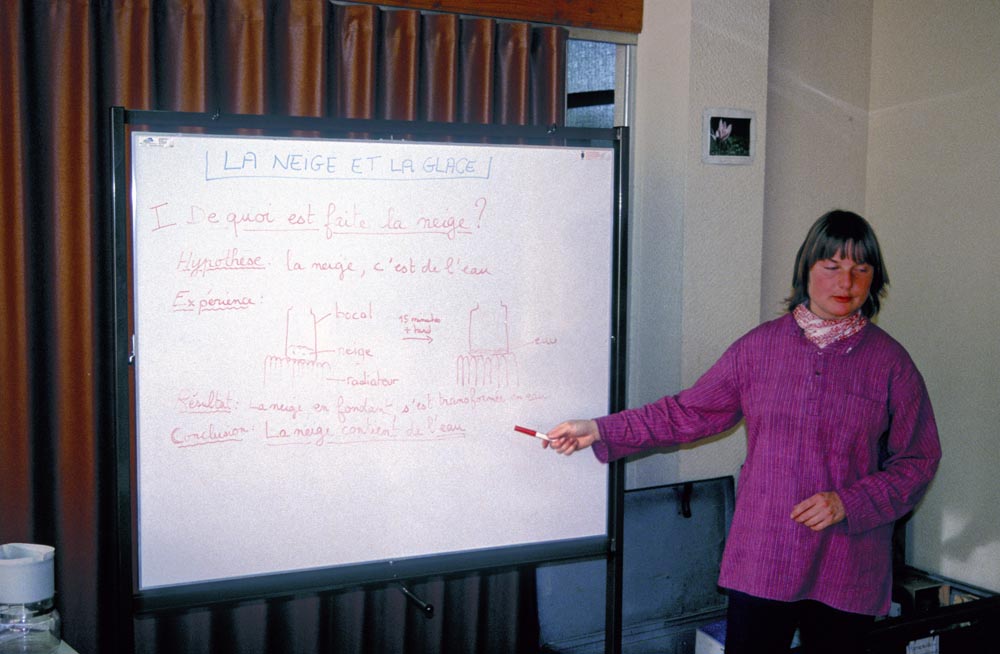 LA NEIGE ET LA GLACE
I De quoi est faite la neige ?
Hypothèse. la neige, c'est de l'eau
Expérience :
bocal
15 minutes
+ tard
neige
eau
radiateur
Résultat : La neige en fondant s'est transformée en eau
Conclusion : La neige contient de l'eau